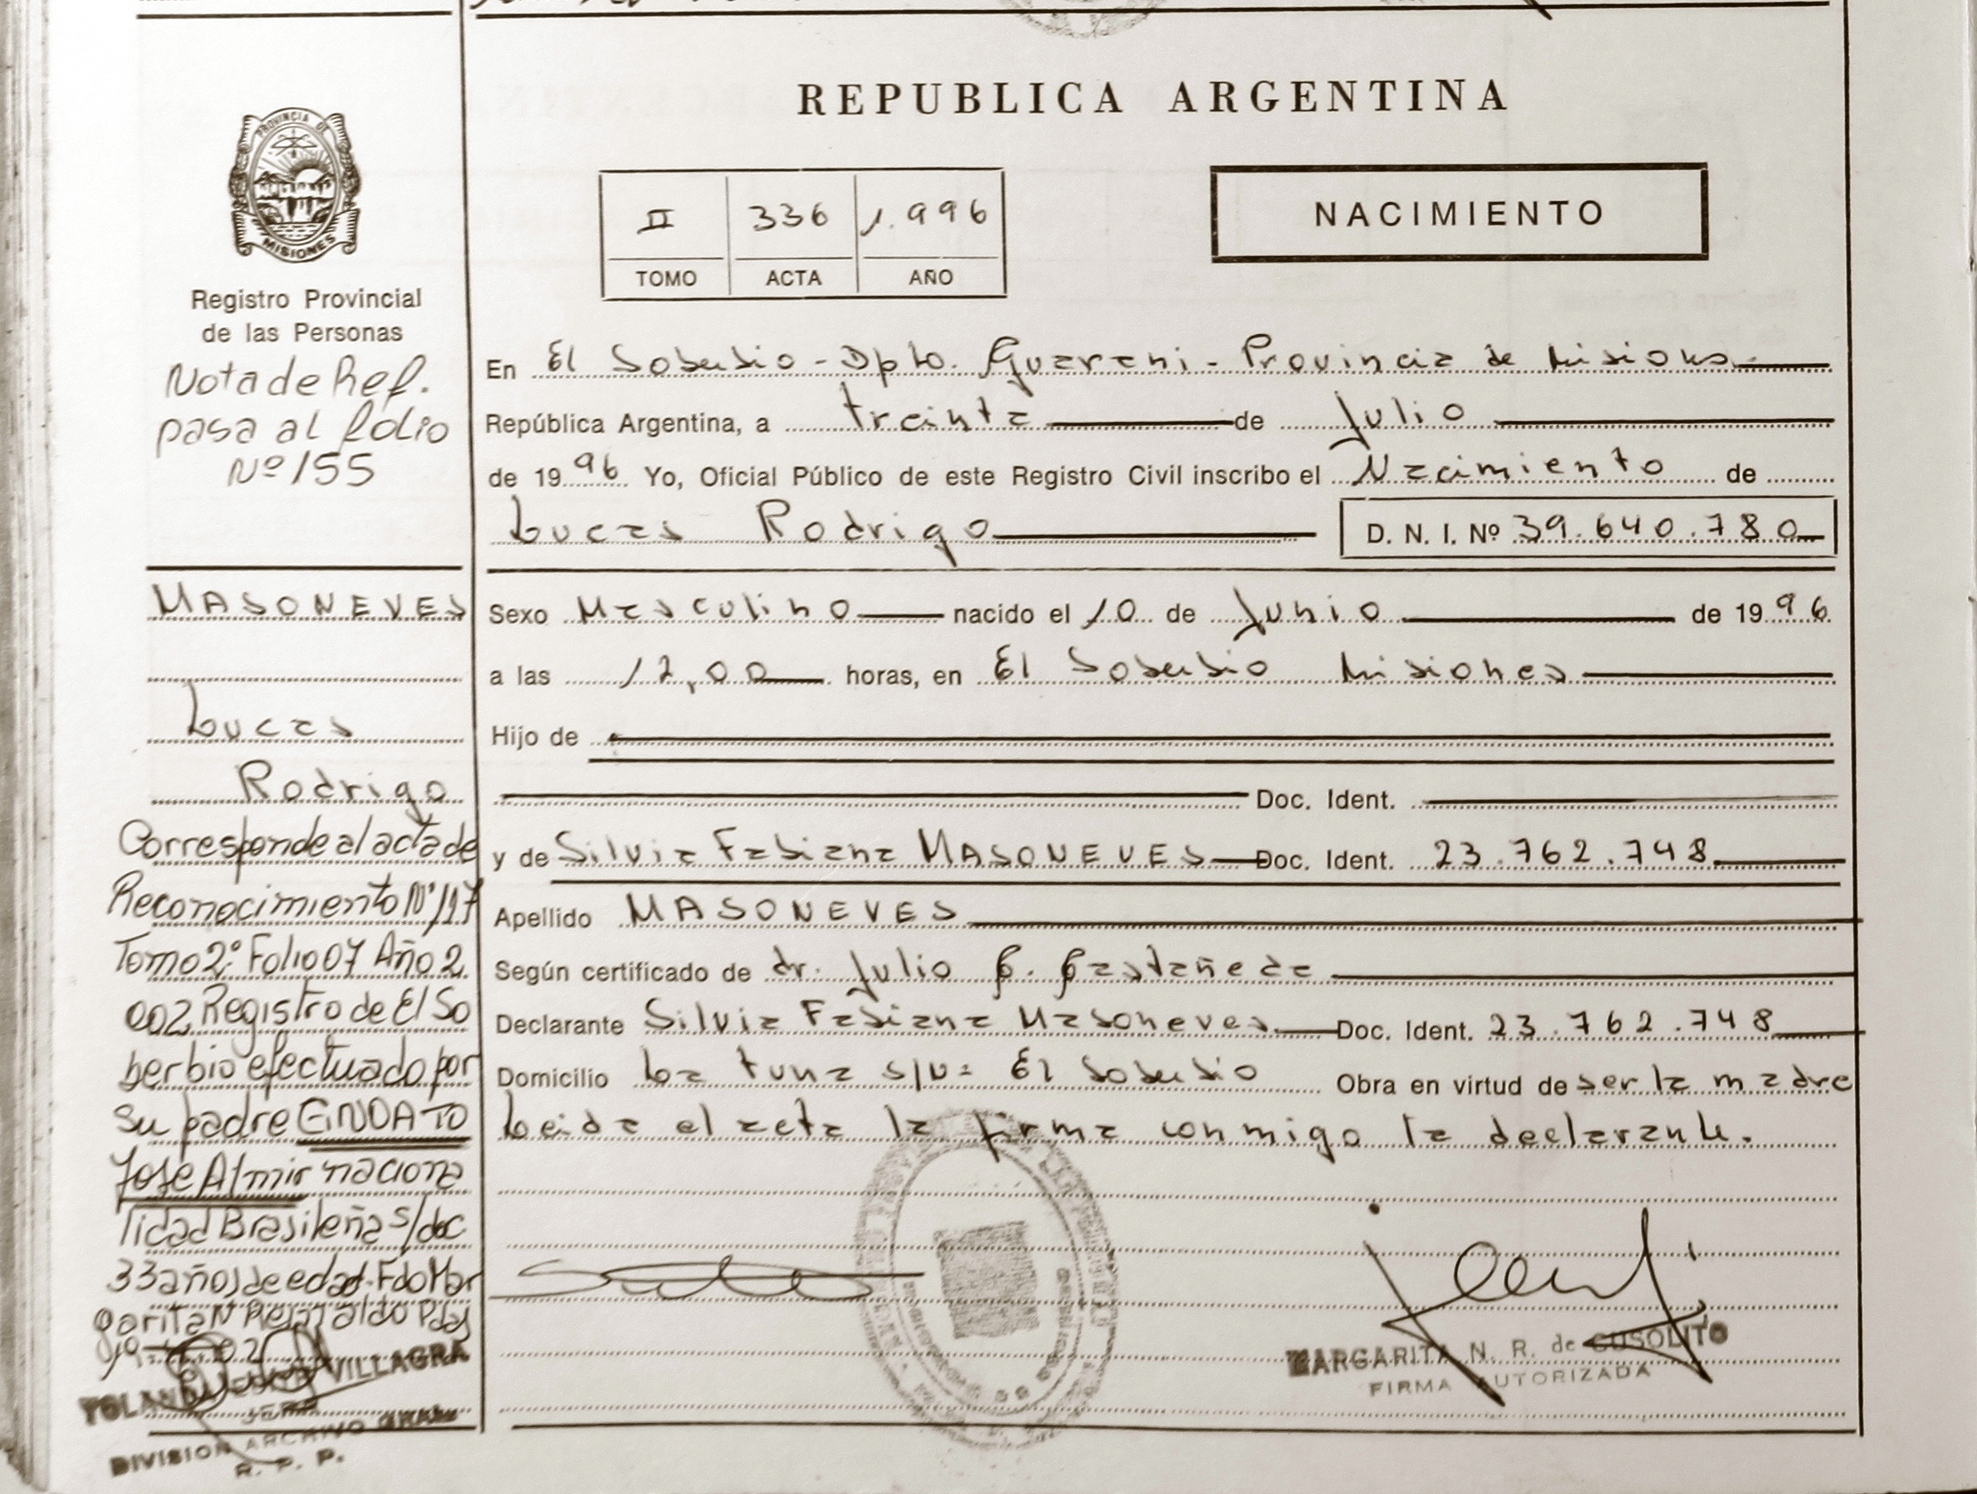 REPUBLICA ARGENTINA
PROVINCIA DE
MISIONES
Registro Provincial
de las Personas
Nota de Ref.
pasa al folio
Nº 155
MASONEVES
Lucas
Rodrigo
Corresponde al acta de
Reconocimiento Nº 117
Tomo 2º Folio 07 Año 2
002 Registro de El So
berbio efectuado por
su padre GNOATO
Jose Almir naciona
lidad Brasileña s/doc
33 años de edad. Fdo Mar
garita N
VILLAGRA
JEFA
DIVISION ARCHIVO GRAL.
R. P. P.
II 336 1.996
TOMO ACTA AÑO
NACIMIENTO
En El Soberbio - Dpto. Guarani - Provincia de Misiones
República Argentina, a treinta de Julio
de 1996 Yo, Oficial Público de este Registro Civil inscribo el Nacimiento de
Lucas Rodrigo D. N. I. Nº 39.640.780
Sexo Masculino nacido el 10 de Junio de 1996
a las 12,00 horas, en El Soberbio Misiones
Hijo de
Doc. Ident.
y de Silvia Fabiana MASONEVES Doc. Ident. 23.762.748
Apellido MASONEVES
Según certificado de dr. Julio C. Castañeda
Declarante Silvia Fabiana Masoneves Doc. Ident. 23.762.748
Domicilio La tuna s/nº El Soberbio Obra en virtud de ser la madre
Leida el acta la firma conmigo la declarante.
MARGARITA N. R. de CUSOLITO
FIRMA AUTORIZADA